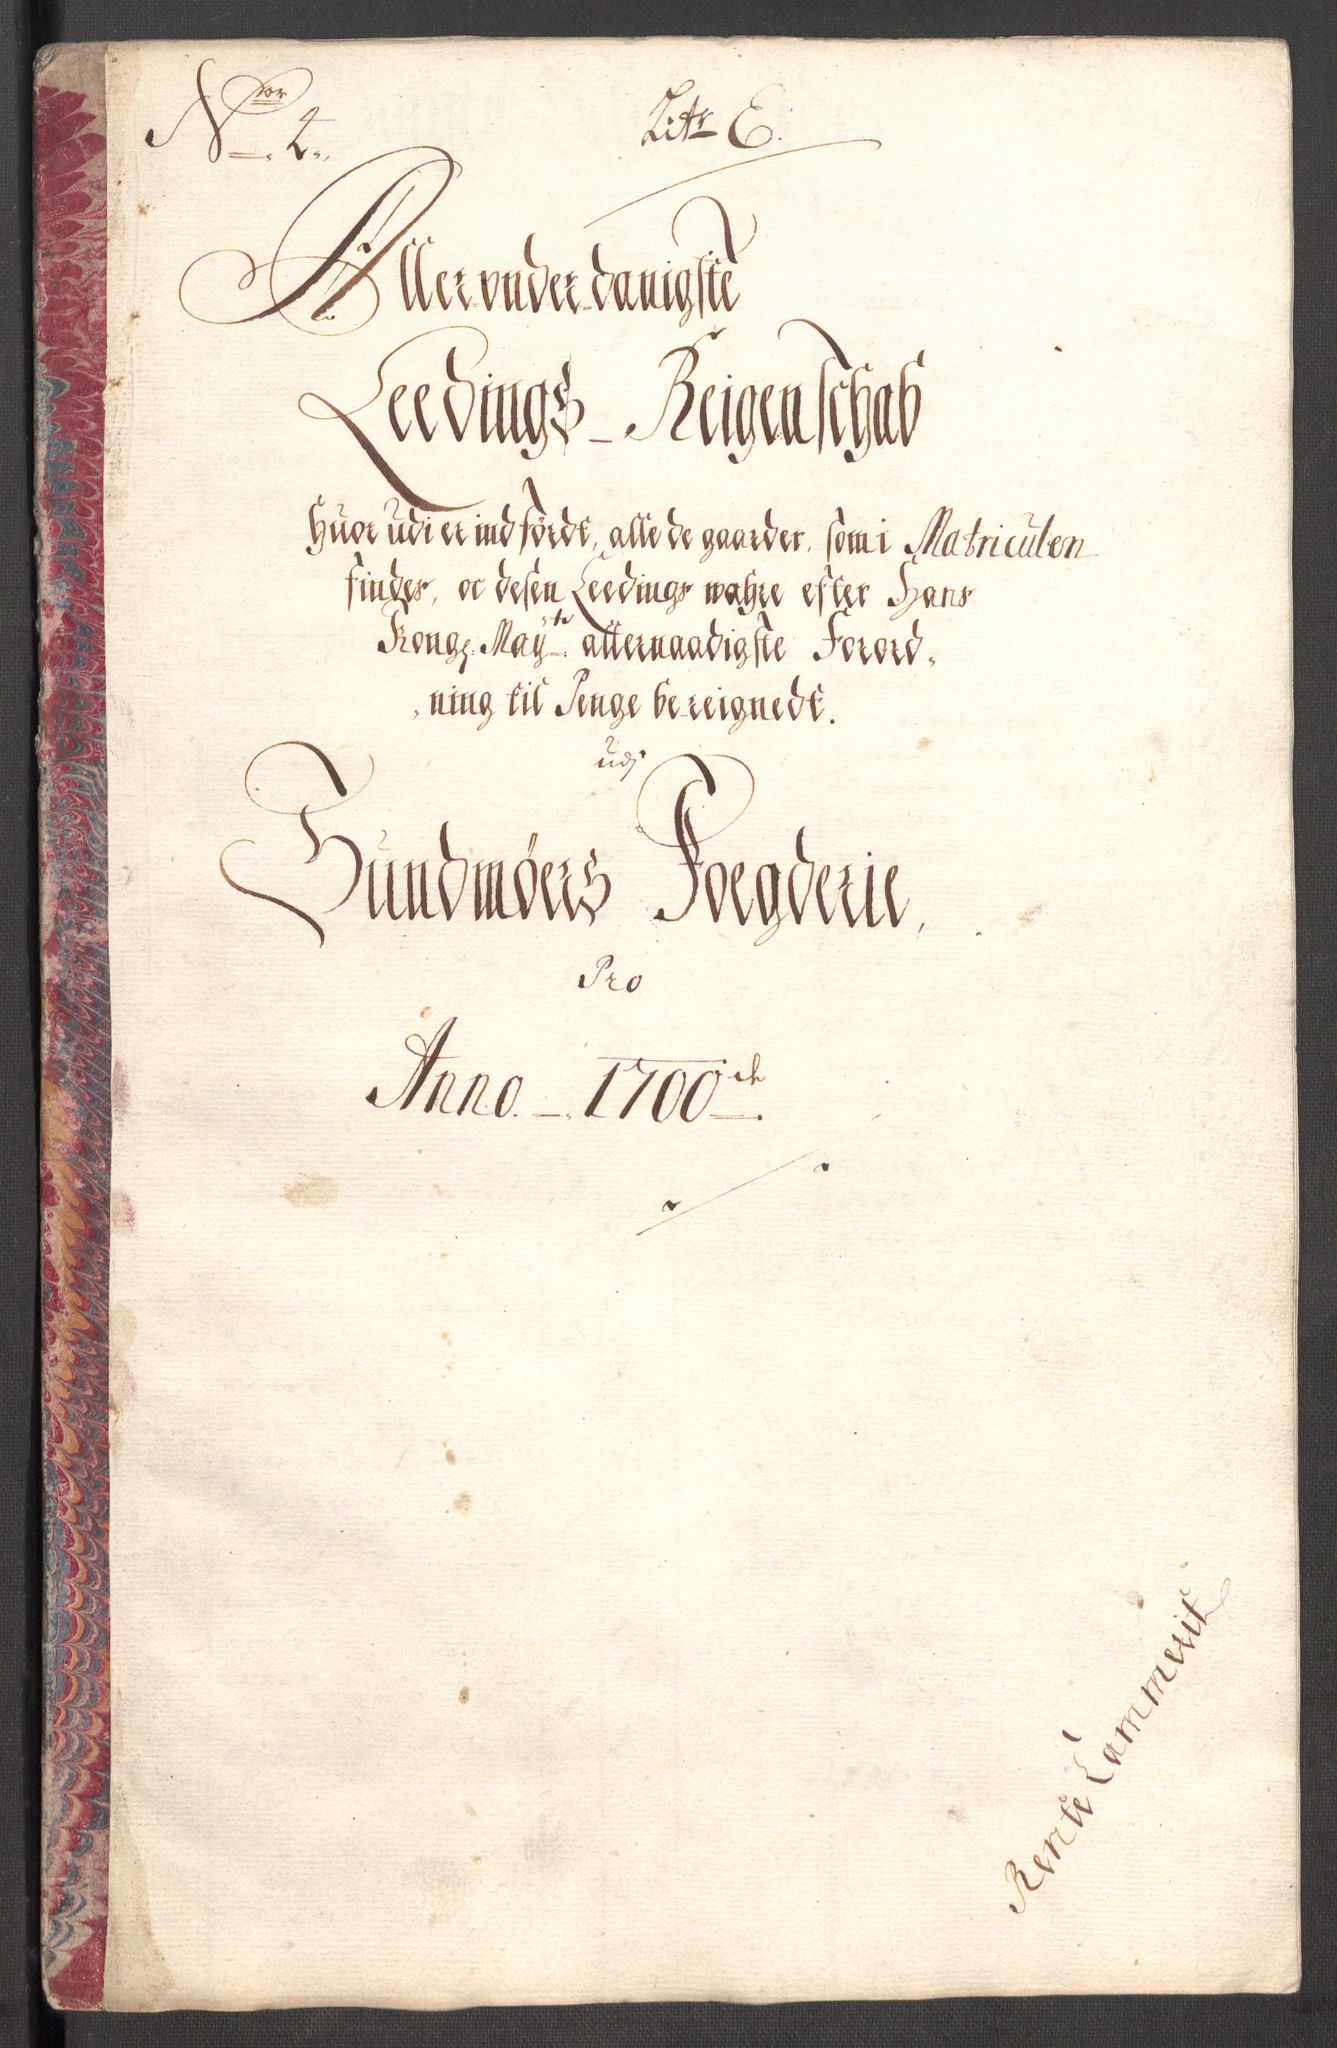 Nor 4.
Litr E.
Aller under danigste
Leedings-Reigenschab
Huor udi er indfördt, alle de gaarder, som i Matriculen
findes, oc desen Leedings wahre efter Hans
Kong. Mayts allernaadigste Forord,
,ning til Penge bereignedt.
udj
Sundmöers Foegderie,
Pro
Anno 1700
Rente Cammerit